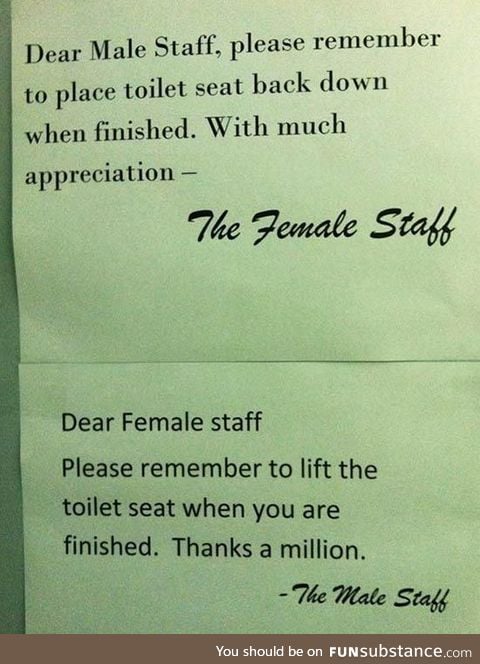 Dear Male Staff, please remember
to place toilet seat back down
when finished. With much
appreciation –
The Female Staff
Dear Female staff
Please remember to lift the
toilet seat when you are
finished. Thanks a million.
- The Male Staff
You should be on FUNsubstance.com